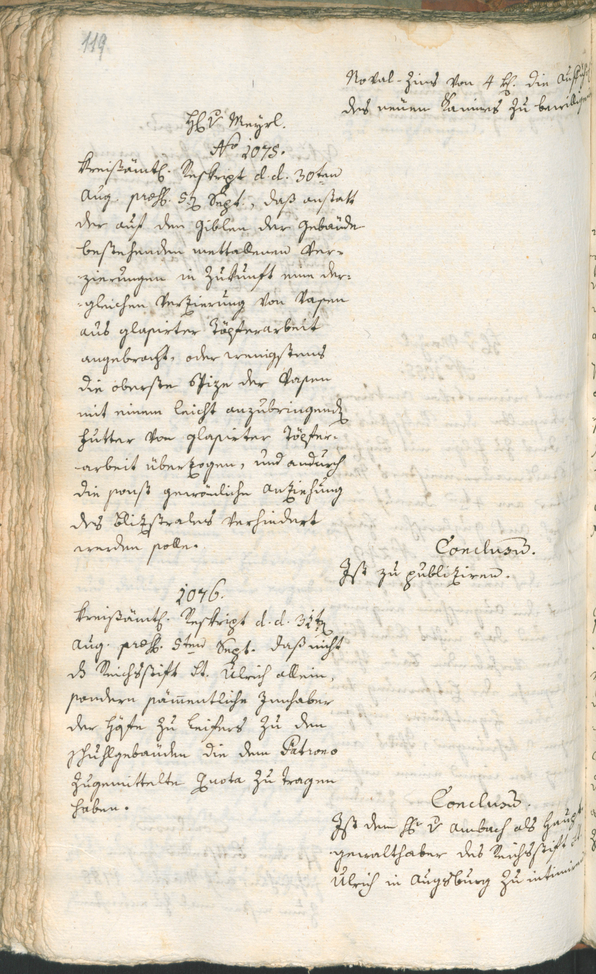 119
Noval-Zins von 4 kr. die Aufficht
des neuen Kamins zu bewilligen
H. v. Meyrl.
No 1075.
Kreißämtl. Reskript d. d. 30ten
Aug. präs. 5t Sept., daß anstatt
der auf den Giblen der Gebäude
bestehenden mettallenen Ver-
zierungen in Zukunft eine der-
gleichen Verzierung von Vasen
aus glasirter Töpferarbeit
angebracht, oder wenigstens
die oberste Spize der Vasen
mit einem leicht anzubringenden
Futter von glasirter Töpfer-
arbeit überzogen, und andurch
die sonst gewöhnliche Anziehung
des Blitzstrales verhindert
werden solle.
Conclusum.
Ist zu publiziren.
1076.
Kreißämtl. Reskript d. d. 31t
Aug. präs. 5ten Sept. daß nicht
d. Reichsstift St. Ulrich allein,
sondern sämmentliche Innhaber
der Höfe zu Leifers zu den
Schuhlgebäuden die dem Patrono
zugemittelte Quota zu tragen
haben.
Conclusum.
Ist dem H. v. Ambach als Haupt
gewalthaber des Reichsstift St.
Ulrich in Augsburg zu intimiren